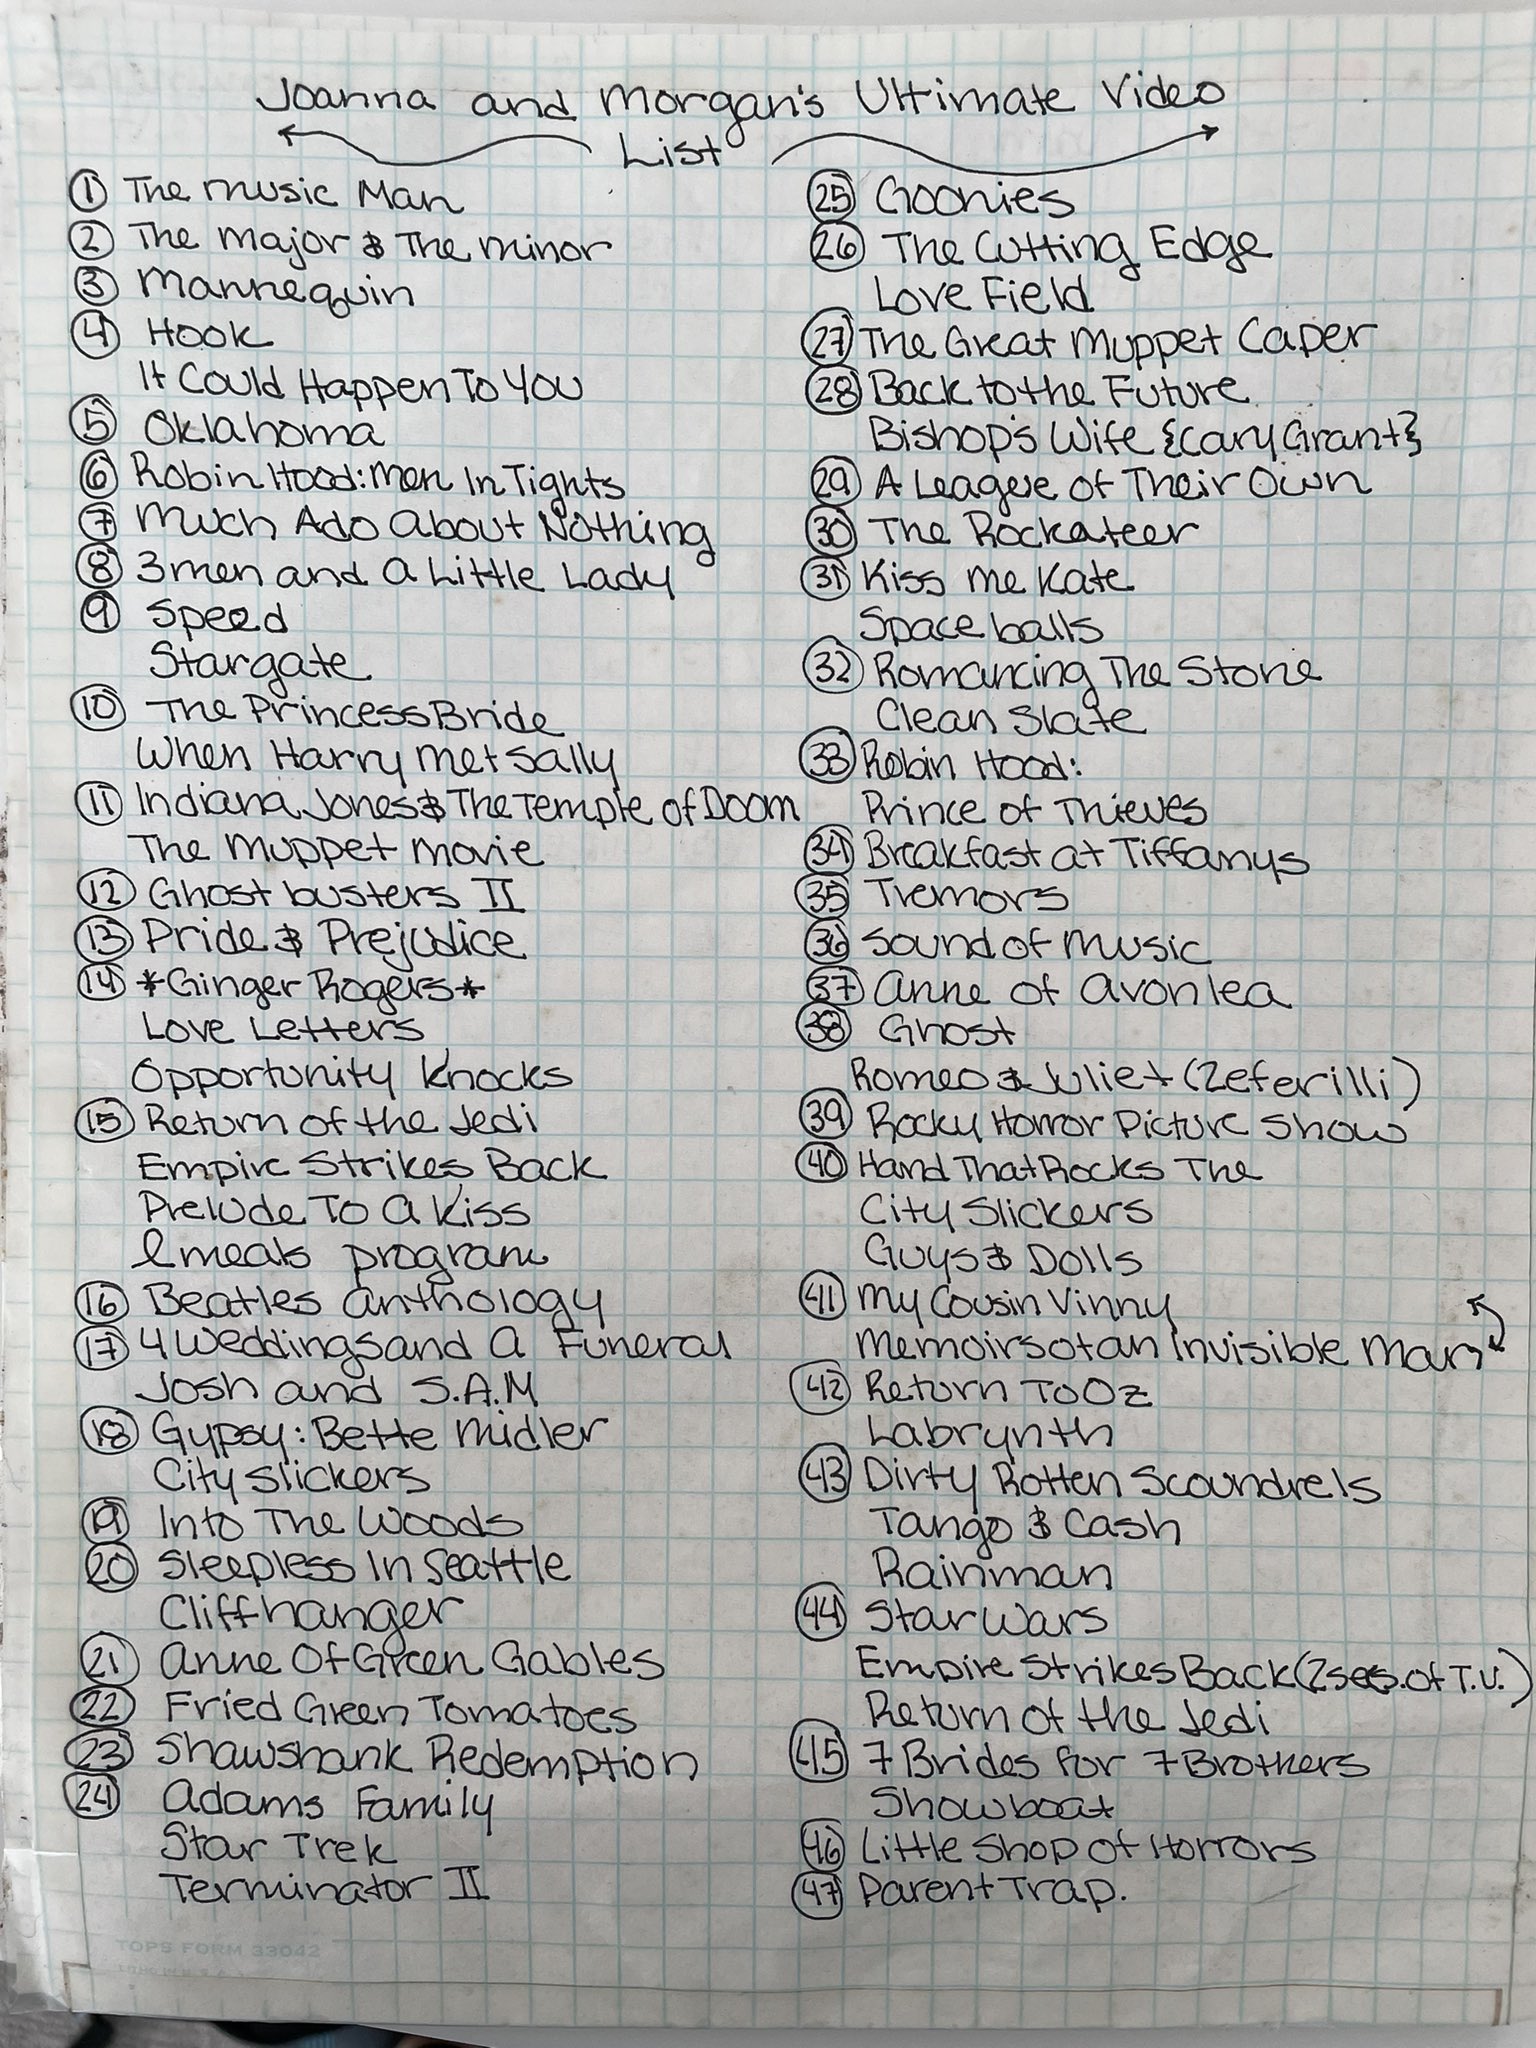 Joanna and Morgan's Ultimate Video
List
1 The Music Man
2 The Major & The Minor
3 Mannequin
4 Hook
It Could Happen To You
5 Oklahoma
6 Robin Hood: Men In Tights
7 Much Ado About Nothing
8 3 men and A Little Lady
9 Speed
Stargate
10 The Princess Bride
When Harry Met Sally
11 Indiana Jones & The Temple of Doom
The Muppet Movie
12 Ghost busters II
13 Pride & Prejudice
14 *Ginger Rogers*
Love Letters
Opportunity Knocks
15 Return of the Jedi
Empire Strikes Back
Prelude To A Kiss
program
16 Beatles Anthology
17 4 Weddings and A Funeral
Josh and S.A.M
18 Gypsy: Bette Midler
City Slickers
19 Into The Woods
20 Sleepless In Seattle
Cliffhanger
21 Anne Of Green Gables
22 Fried Green Tomatoes
23 Shawshank Redemption
24 Adams Family
Star Trek
Terminator II
25 Goonies
26 The Cutting Edge
Love Field
27 The Great Muppet Caper
28 Back to the Future
Bishop's Wife {Cary Grant}
29 A League of Their Own
30 The Rockateer
31 Kiss Me Kate
Space balls
32 Romancing The Stone
Clean Slate
33 Robin Hood:
Prince of Thieves
34 Breakfast at Tiffanys
35 Tremors
36 Sound of Music
37 Anne of Avonlea
38 Ghost
Romeo & Juliet (Zeferilli)
39 Rocky Horror Picture Show
40 Hand That Rocks The
City Slickers
Guys & Dolls
41 My Cousin Vinny
Memoirs of an Invisible Man
42 Return To Oz
Labrynth
43 Dirty Rotten Scoundrels
Tango & Cash
Rainman
44 Star Wars
Empire Strikes Back (2 secs. of T.V.)
Return of the Jedi
45 7 Brides for 7 Brothers
Showboat
46 Little Shop of Horrors
47 Parent Trap.
TOPS FORM 33042